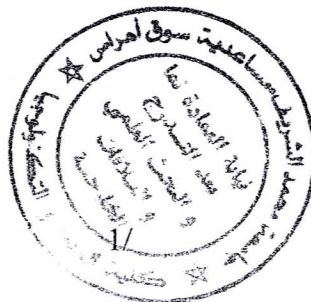 جامعة محمد الشريف مساعدية سوق أهراس
كلية
نيابة العمادة لما
بعد التدرج
و البحث العلمي
و العلاقات
الخارجية
1/